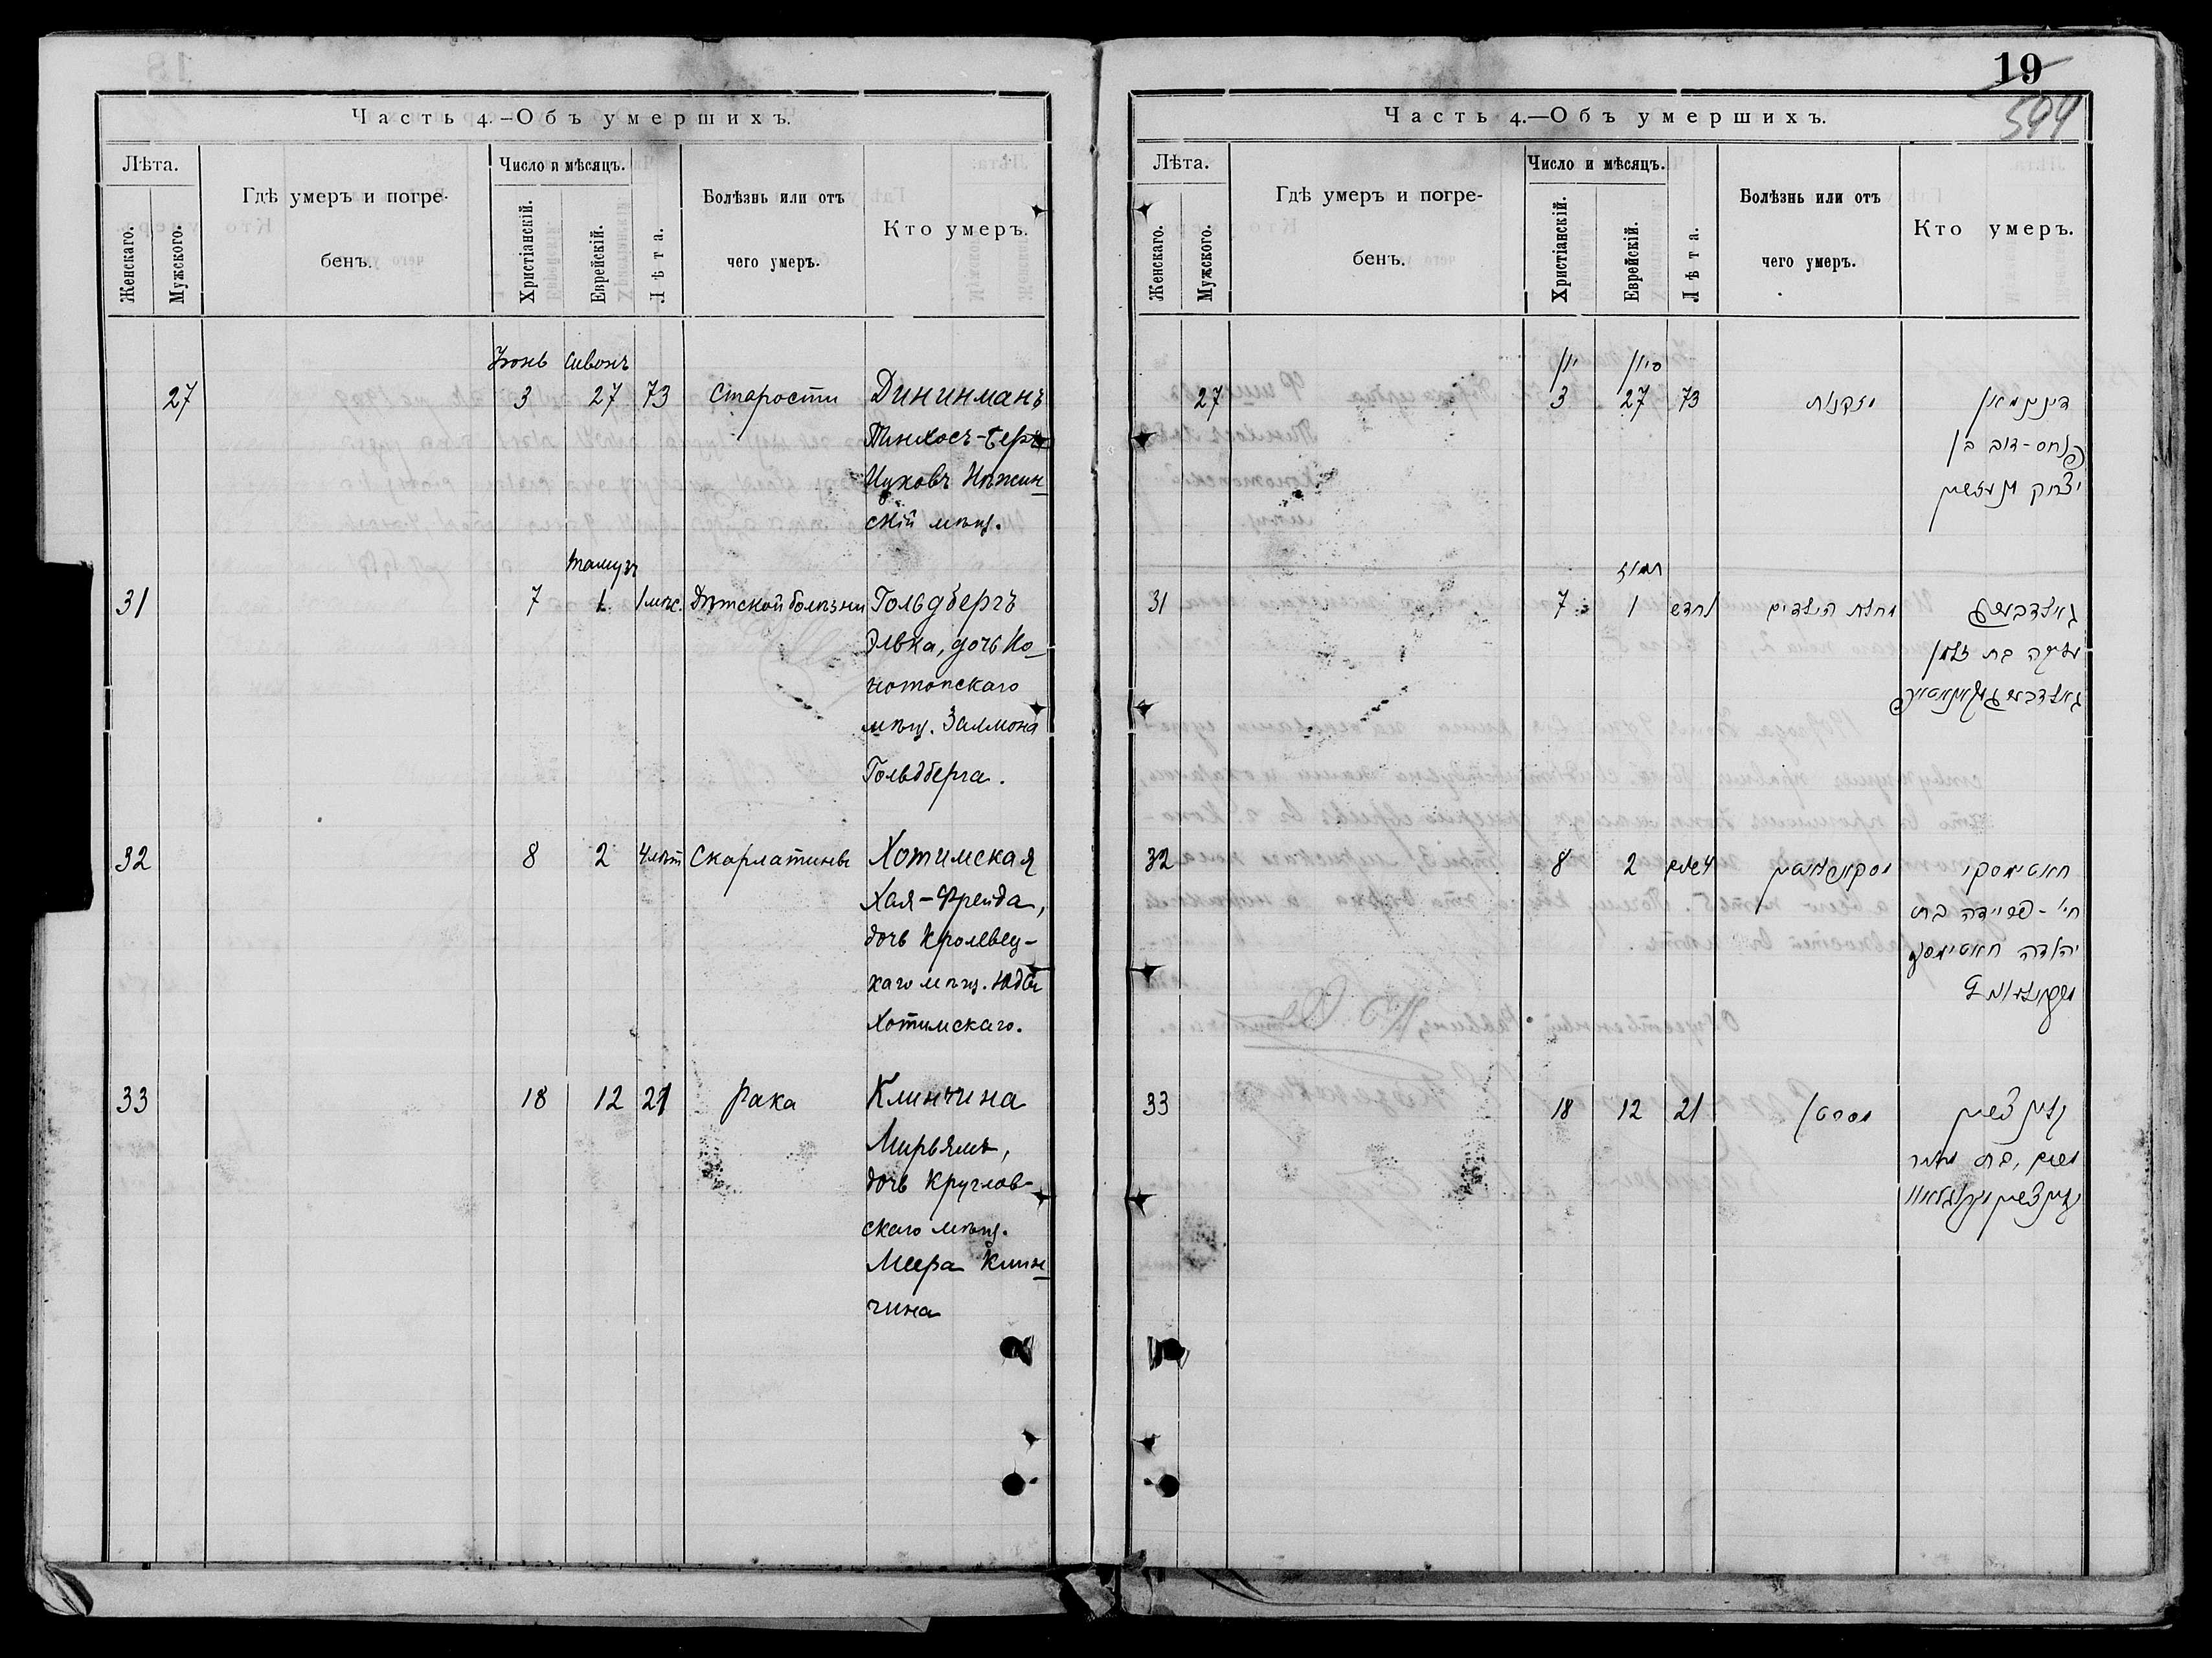 Часть 4.–Объ умершихъ.
Лѣта.
Женскаго.
Мужскаго.
Гдѣ умеръ и погре-
бенъ.
Число и мѣсяцъ.
Христіанскій.
Еврейскій.
Лѣта.
Болѣзнь или отъ
чего умеръ.
Кто умеръ.
Іюнь Сивонъ
27 3 27 73 Старости Дининманъ
Пинхосъ-Беръ
Ицковъ Нѣжин-
скій мѣщ.
Тамузъ
31 7 1 1 мѣс. Дѣтской болѣзни Гольдбергъ
Элька, дочь Ко-
нотопскаго
мѣщ. Залмона
Гольдберга.
32 8 2 4 лѣт Скарлатины Хотимская
Хая-Фрейда,
дочь Кролевец-
каго мѣщ. Юдки
Хотимскаго.
33 18 12 21 Рака Клинчина
Мирьямъ,
дочь Круглов-
скаго мѣщ.
Меера Клин-
чина
19
594
Часть 4.—Объ умершихъ.
Лѣта.
Женскаго.
Мужскаго.
Гдѣ умеръ и погре-
бенъ.
Число и мѣсяцъ.
Христіанскій.
Еврейскій.
Лѣта.
Болѣзнь или отъ
чего умеръ.
Кто умеръ.
יון סיון
27 3 27 73 מזקנות דינינמאן
פנחס-דוב בן
יצחק
תמוז
31 7 1 1 חדש מחלת הילדים גאלדבערג
עלקה בת זלמן
גאלדבערג
32 8 2 4 שנים חאטימסקי
חי' - פריידה בת
יהודה חאטימסקי
33 18 12 21 מסרטן קלינצשין
מרים, בת מאיר
קלינצשין